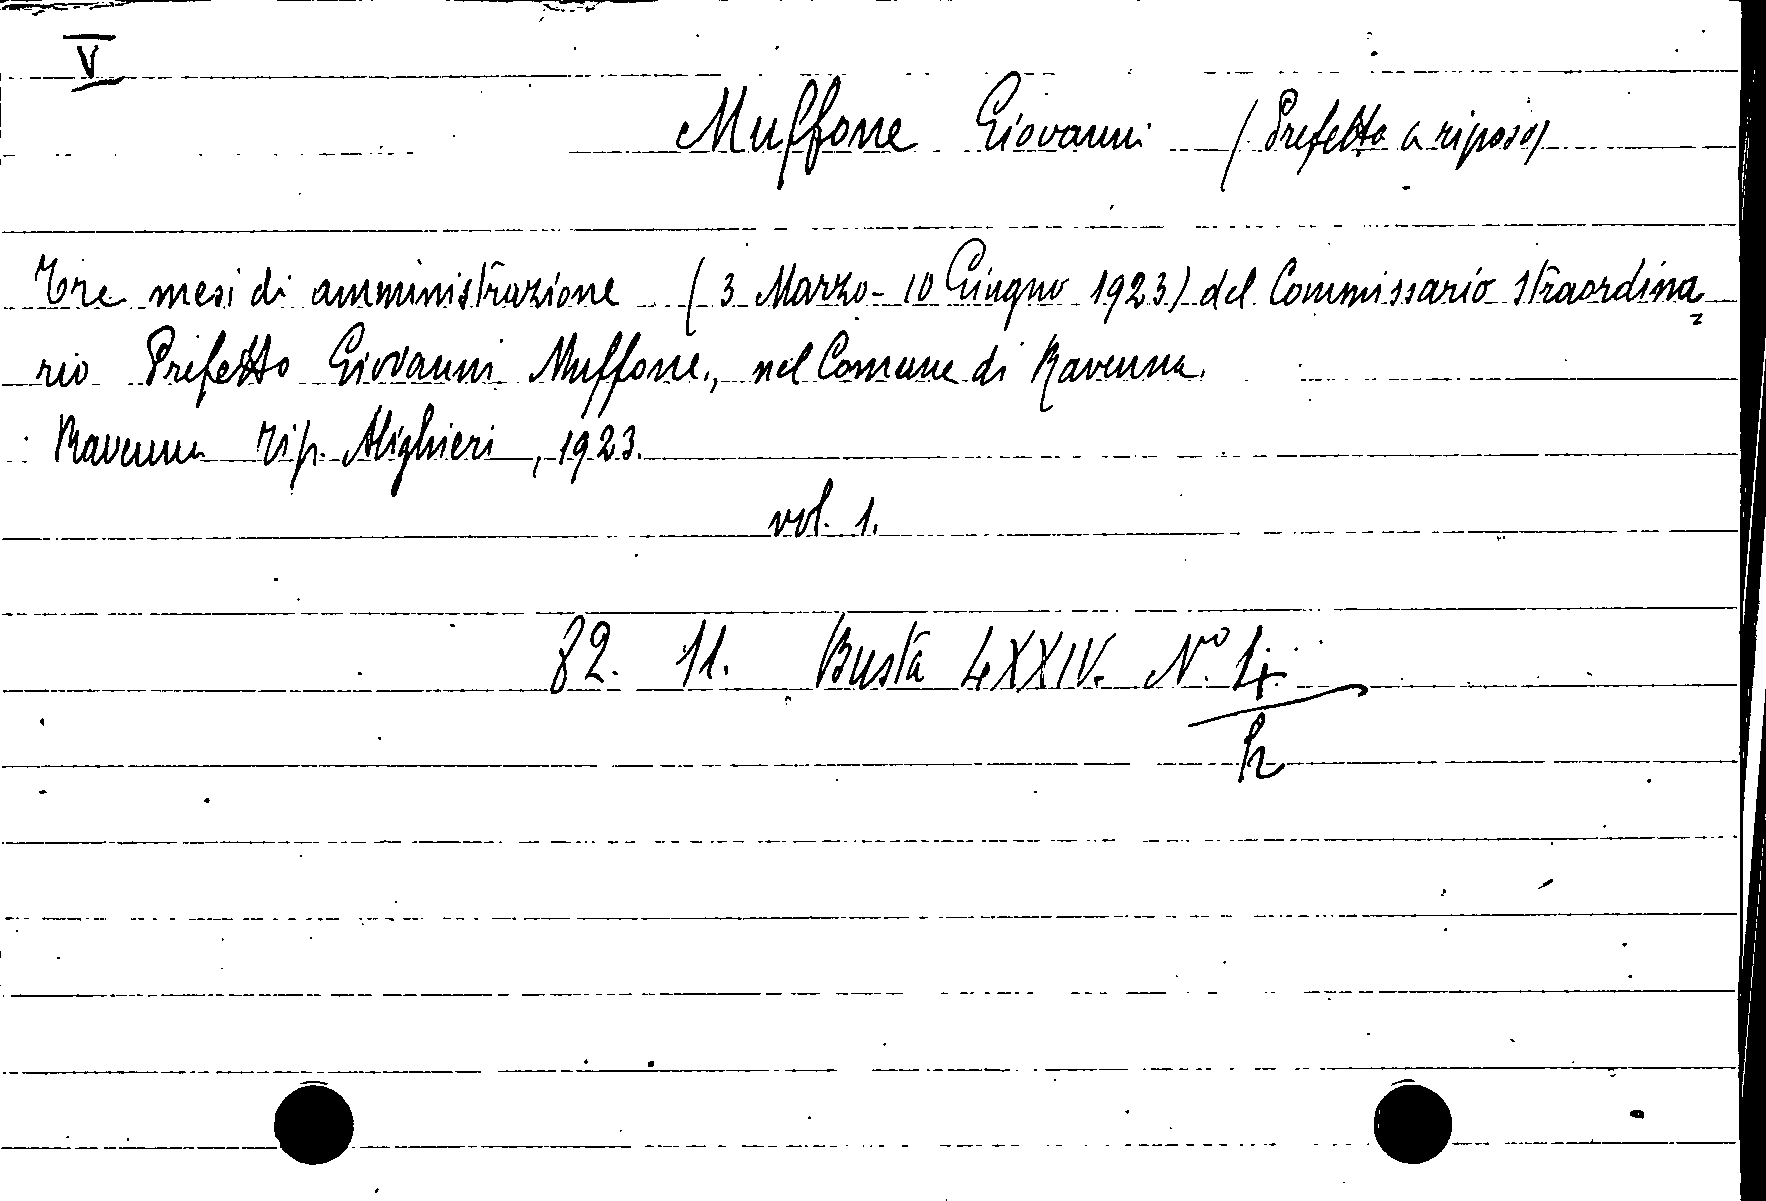 V
Muffone Giovanni (Prefetto a riposo)
Tre mesi di amministrazione (3 Marzo - 10 Giugno 1923) del Commissario straordina
rio Prefetto Giovanni Muffone, nel Comune di Ravenna.
Ravenna Tip. Alighieri, 1923.
vol. 1.
82. 11. Busta LXXIV. N.º 4
h